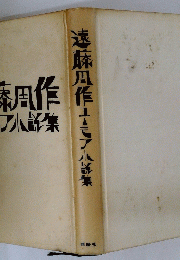 藤周作
ア小説集
遠藤周作ユーモア小説集